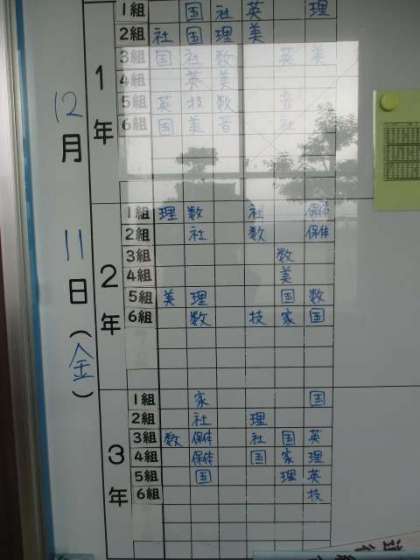 12月11日(金)
1年
1組 国 社 英 理
2組 社 国 理 美
3組 国 社 数 英 美
4組 英 美
5組 英 技 数 音
6組 国 美 音 社
2年
1組 理 数 社 保体
2組 社 数 保体
3組 数
4組 美
5組 美 理 国 数
6組 数 技 家 国
3年
1組 家 国
2組 社 理
3組 数 保体 社 国 英
4組 保体 国 家 理
5組 国 理 英
6組 技